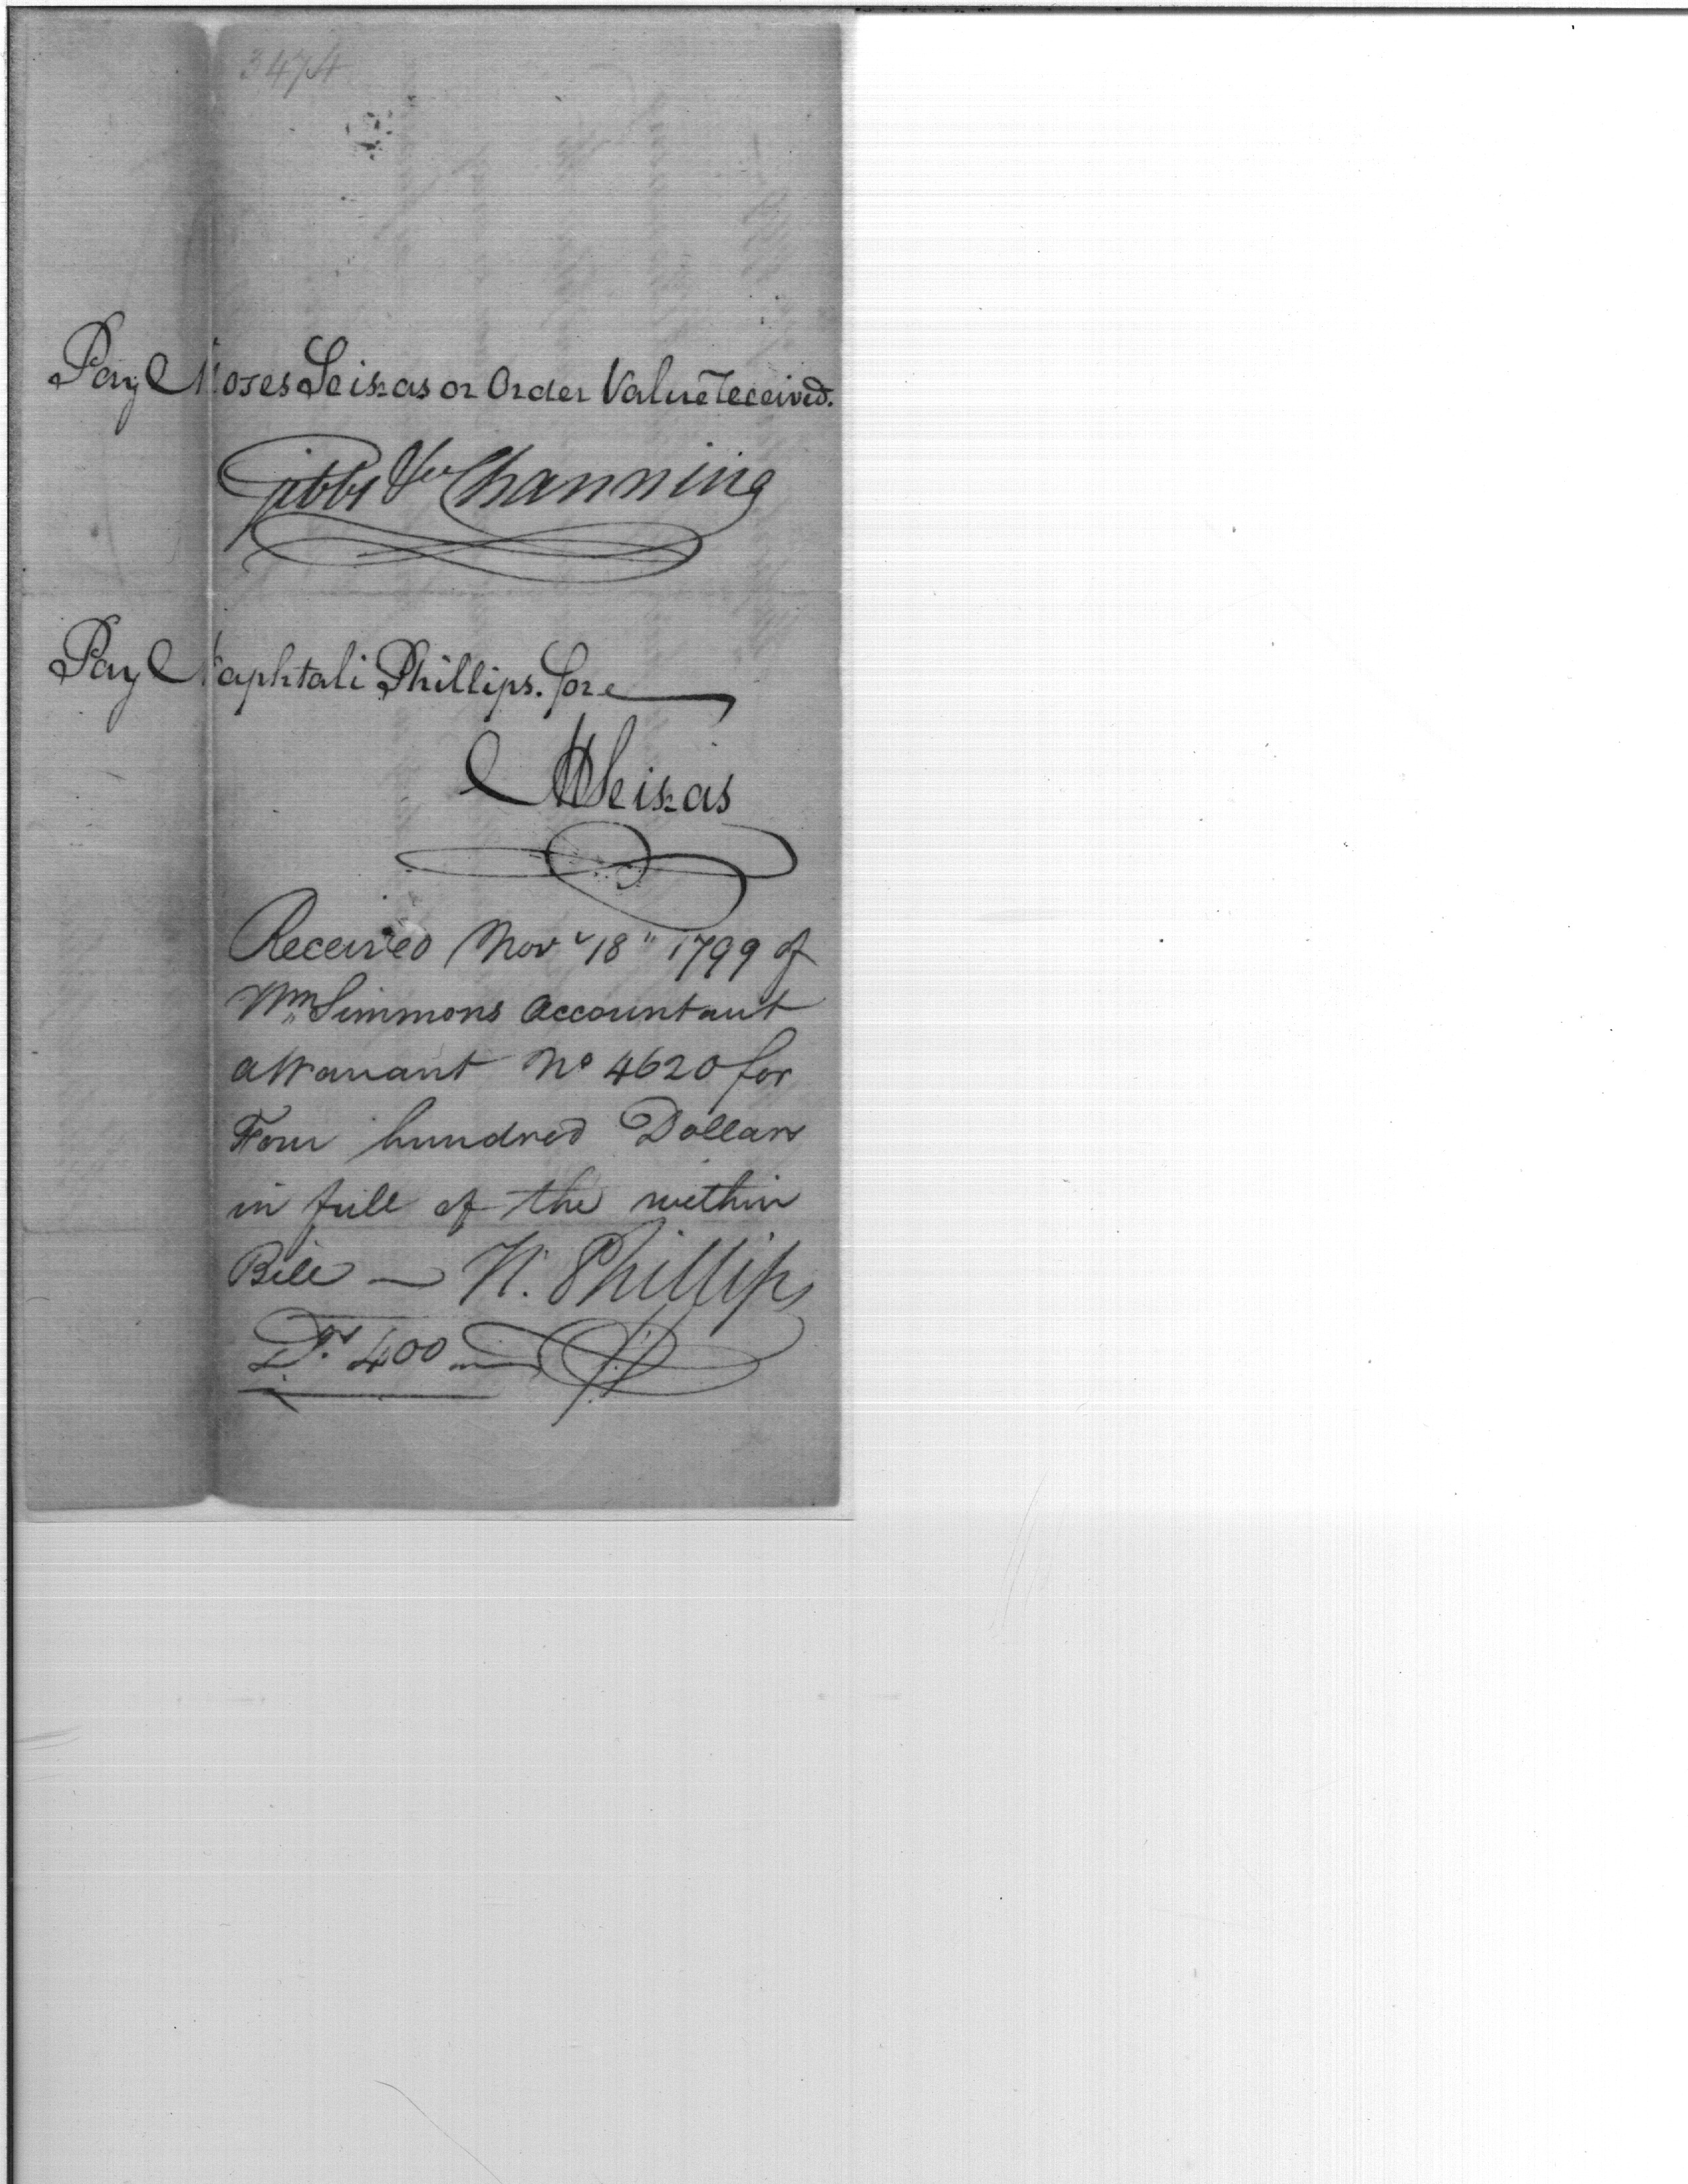 3474
Pay Moses Seixas or Order Value received.
Gibbs & Channing
Pay Naphtali Phillips. or
M Seixas
Received Novr 18" 1799 of
Wm Simmons Accountant
a Warrant No 4620 for
Four hundred Dollars
in full of the within
Bill — N. Phillips
Drs 400